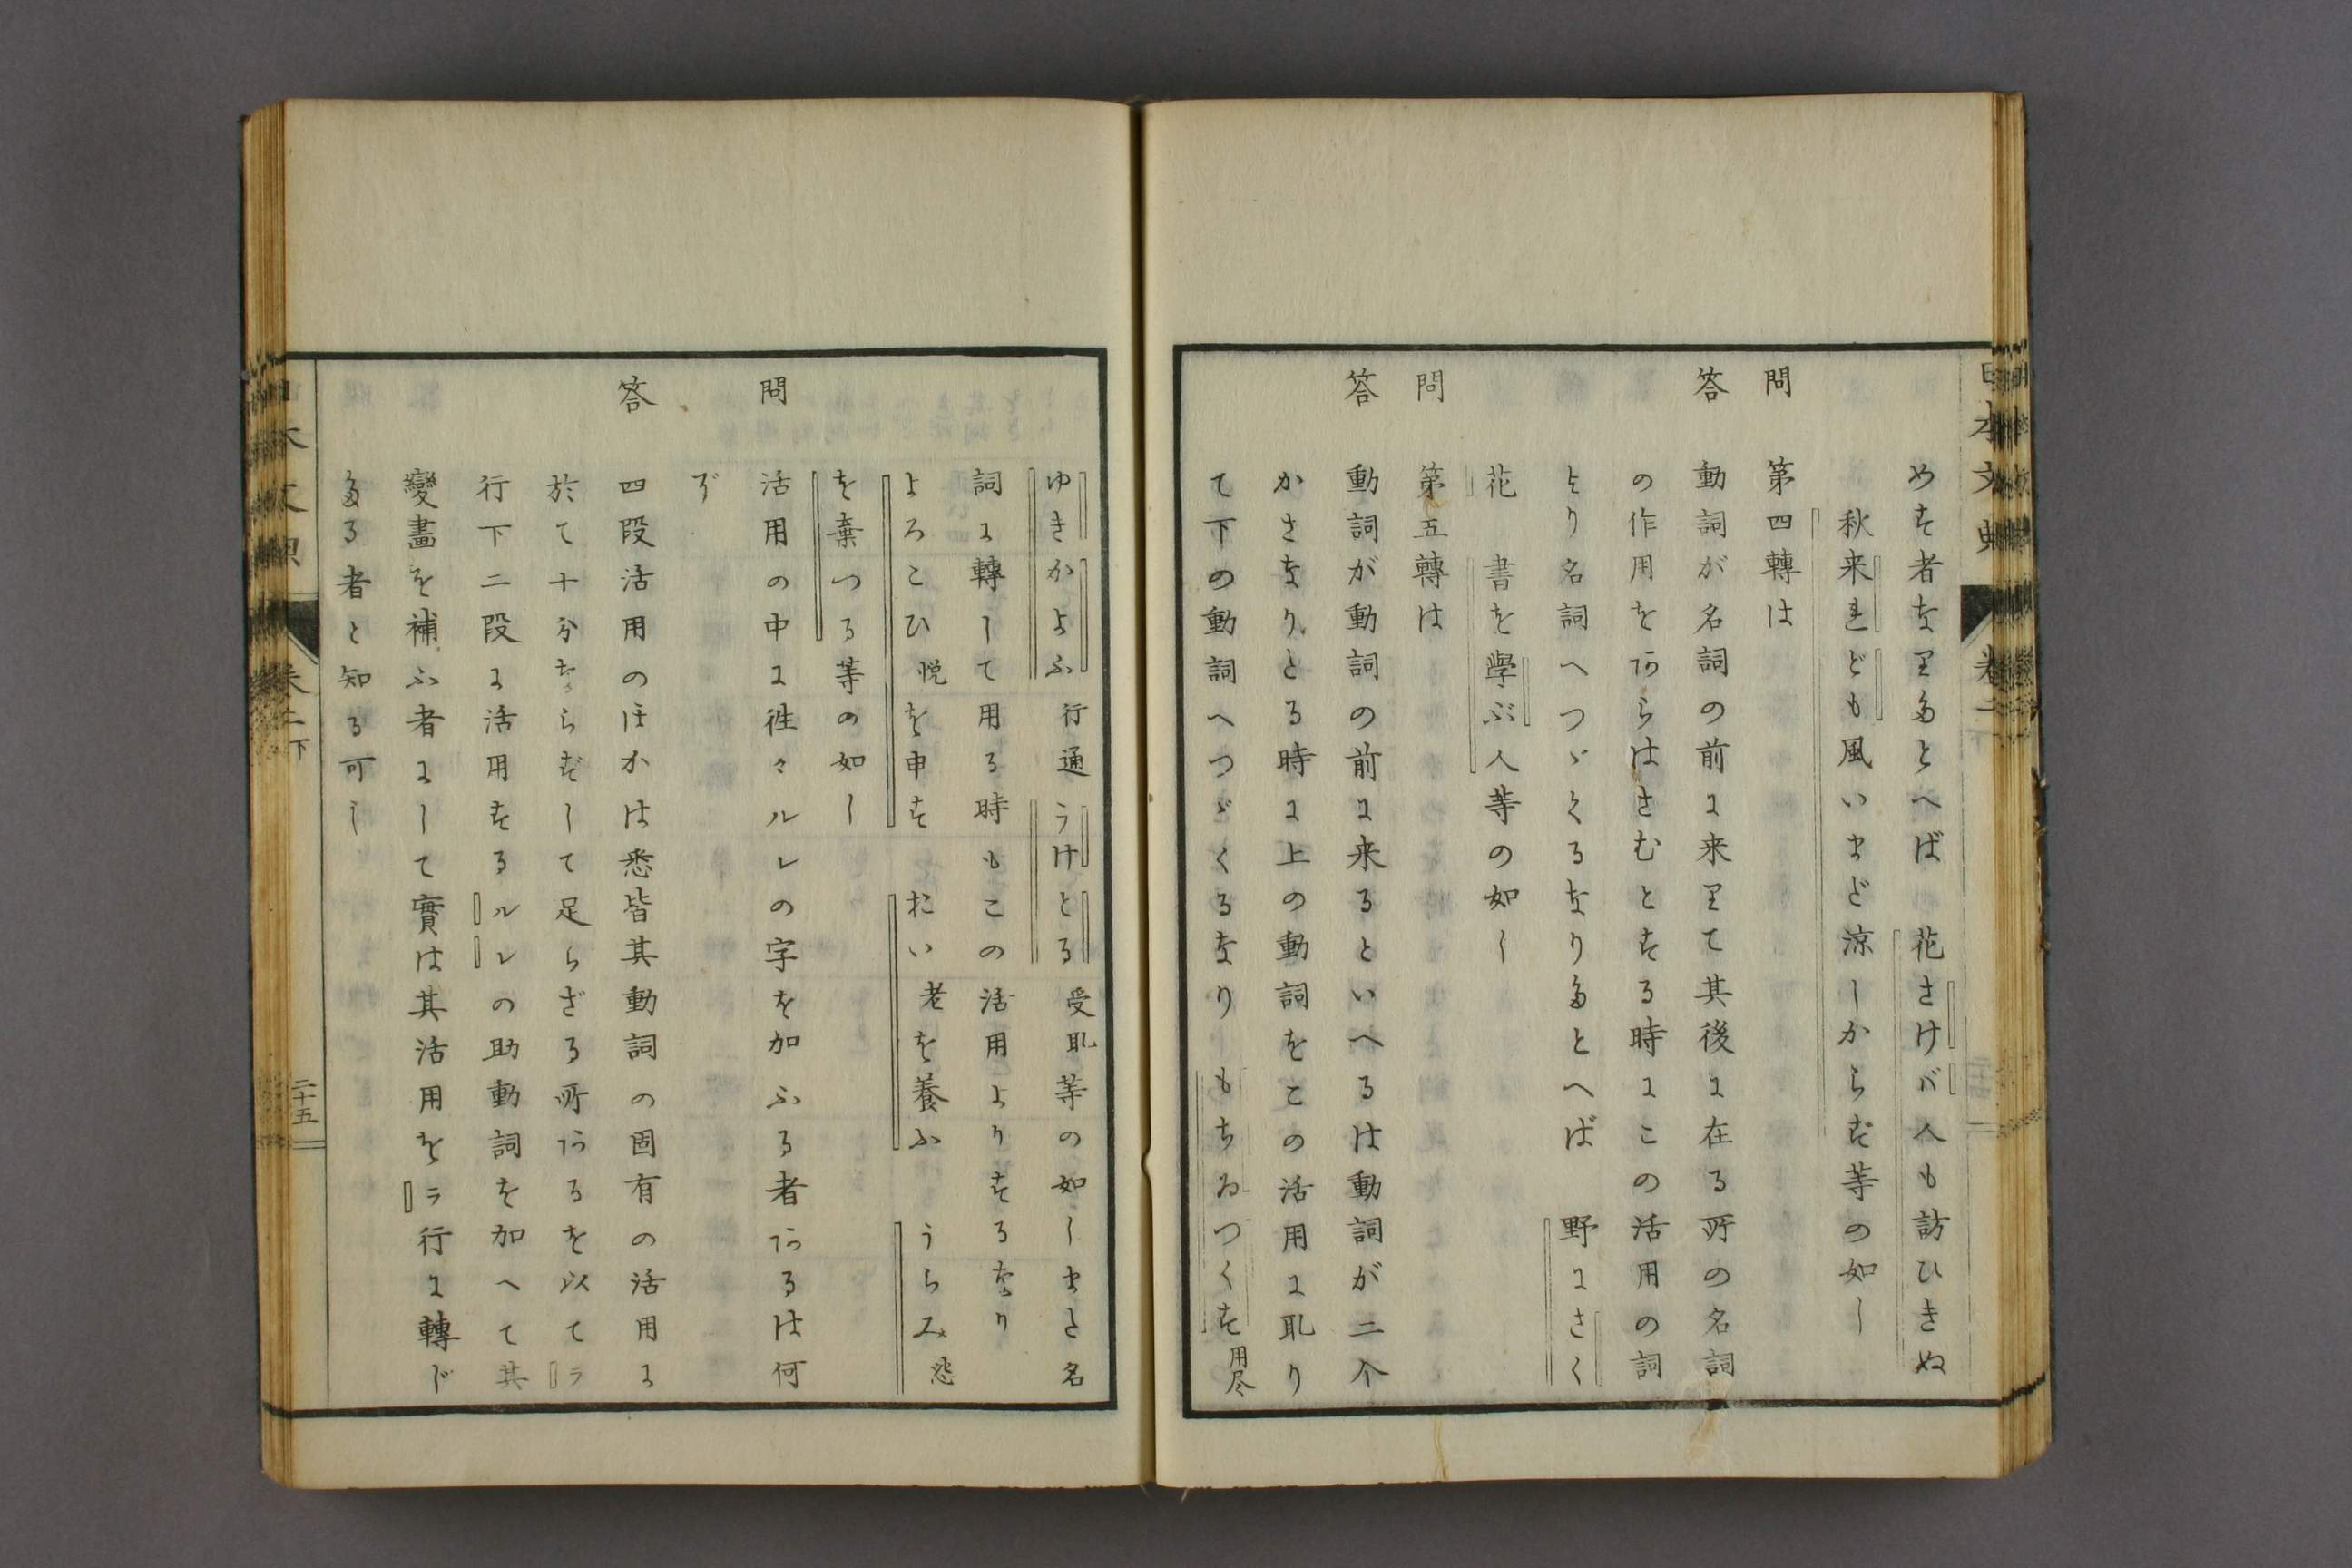 めす者なりたとへば　花さけバ人も訪ひきぬ
秋来れども風いまだ涼しからず等の如し
問　第四轉は
答　動詞が名詞の前に来りて其後に在る所の名詞
の作用をあらはさむとする時にこの活用の詞
より名詞へつゞくるなりたとへば　野にさく
花　書を學ぶ人等の如し
問　第五轉は
答　動詞が動詞の前に来るといへるは動詞が二个
かさなりとる時に上の動詞をこの活用に取り
て下の動詞へつゞくるなり　もちゐつくす用尽
ゆきかよふ行通うけとる受取等の如しまた名
詞に轉して用る時もこの活用よりするなり
よろこひ悦を申す　おい老を養ふ　うらみ怨
を棄つる等の如し
問　活用の中に徃々ルレの字を加ふる者あるは何
ぞ
答　四段活用のほかは悉皆其動詞の固有の活用に
於て十分ならずして足らざる所あるを以てラ
行下二段に活用するルレの助動詞を加へて其
變畫を補ふ者にして實は其活用をラ行に轉じ
たる者と知る可し
日本文典　卷二下　二十五